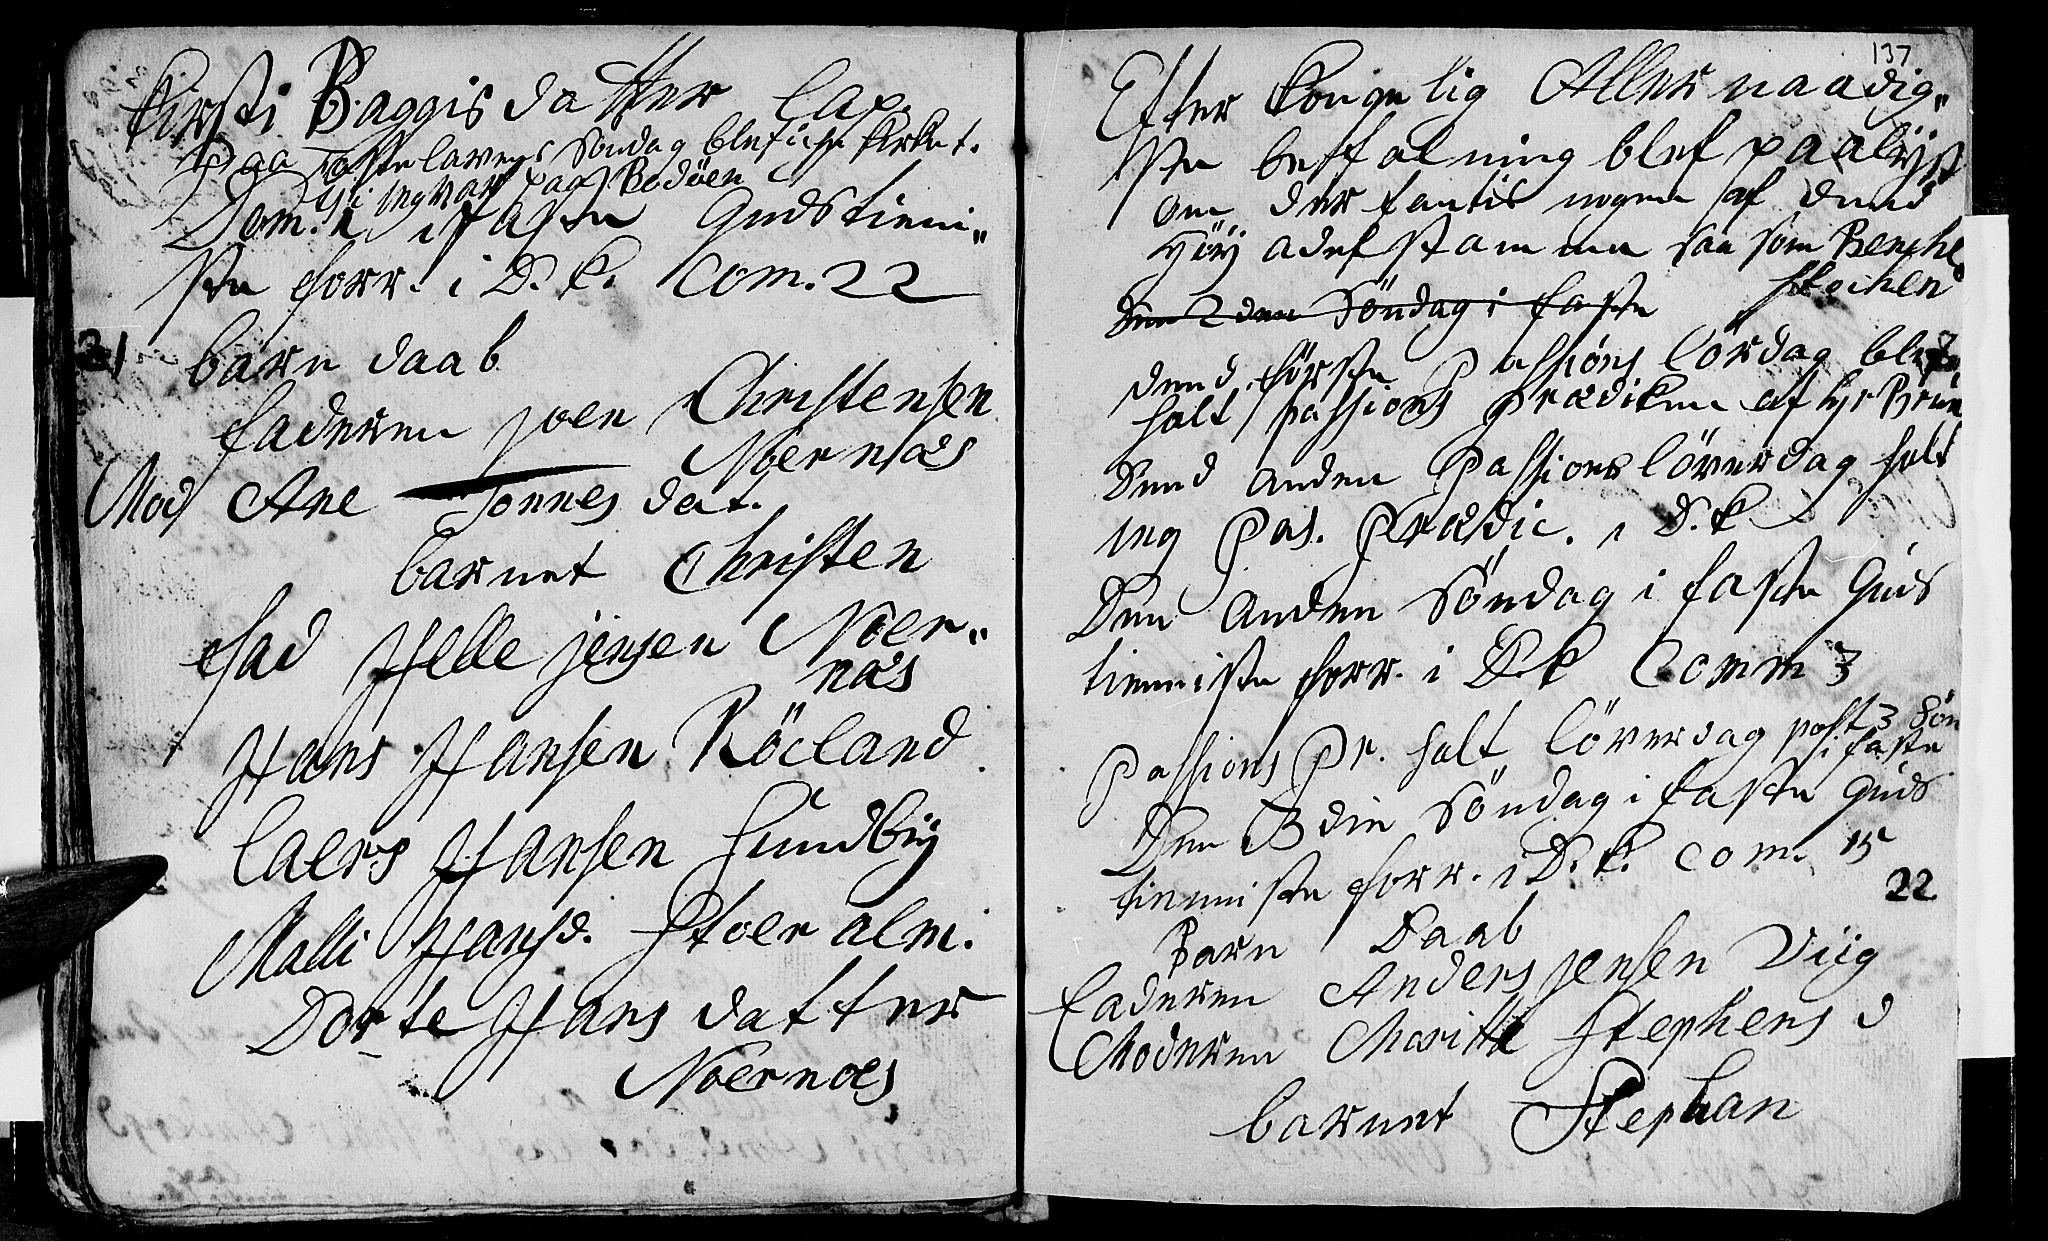 Kirsti Baggisdatter Lap.
Paa Fastelavens Söndag blef iche Prket.
thi ieg var paa Bodöen
Dom. 1 i Faste Gudstieni„
ste forr. i D. k. Com. 22
21 barn daab
faderen joen Christensen
Noernæs
Mod Ane Tonnes dat.
barnet Christen
fad Helle jensen Noer„
næs
Hans Hansen Röeland
Laers Hansen Sundbÿ
Malli Hansd. Stoer alm.
Dorte Hans datter
Noernæs
137
Efter Kongelig Aller naadig„
ste befalning blef paalÿst
om der fantis nogen af dend
Höÿ adelstamme saa som Benche
stochen
den 2 den Söndag i faste
dend förste Passions lördag blef
halt passions Prædiken af Hr Brun
Dend anden Passions löverdag holt
ieg Pas. Prædic. i D. k
Den anden Söndag i faste Guds
tienniste forr. i D. k Comm 3
Passions Pr. halt löverdag post 3 Sön
i faste
Den 3 die Söndag i faste Guds
tienniste forr. i D. k. Com. 15
22
Barn Daab
faderen Anders jensen Viig
Moderen Maritte Stephens d
barnet Stephan